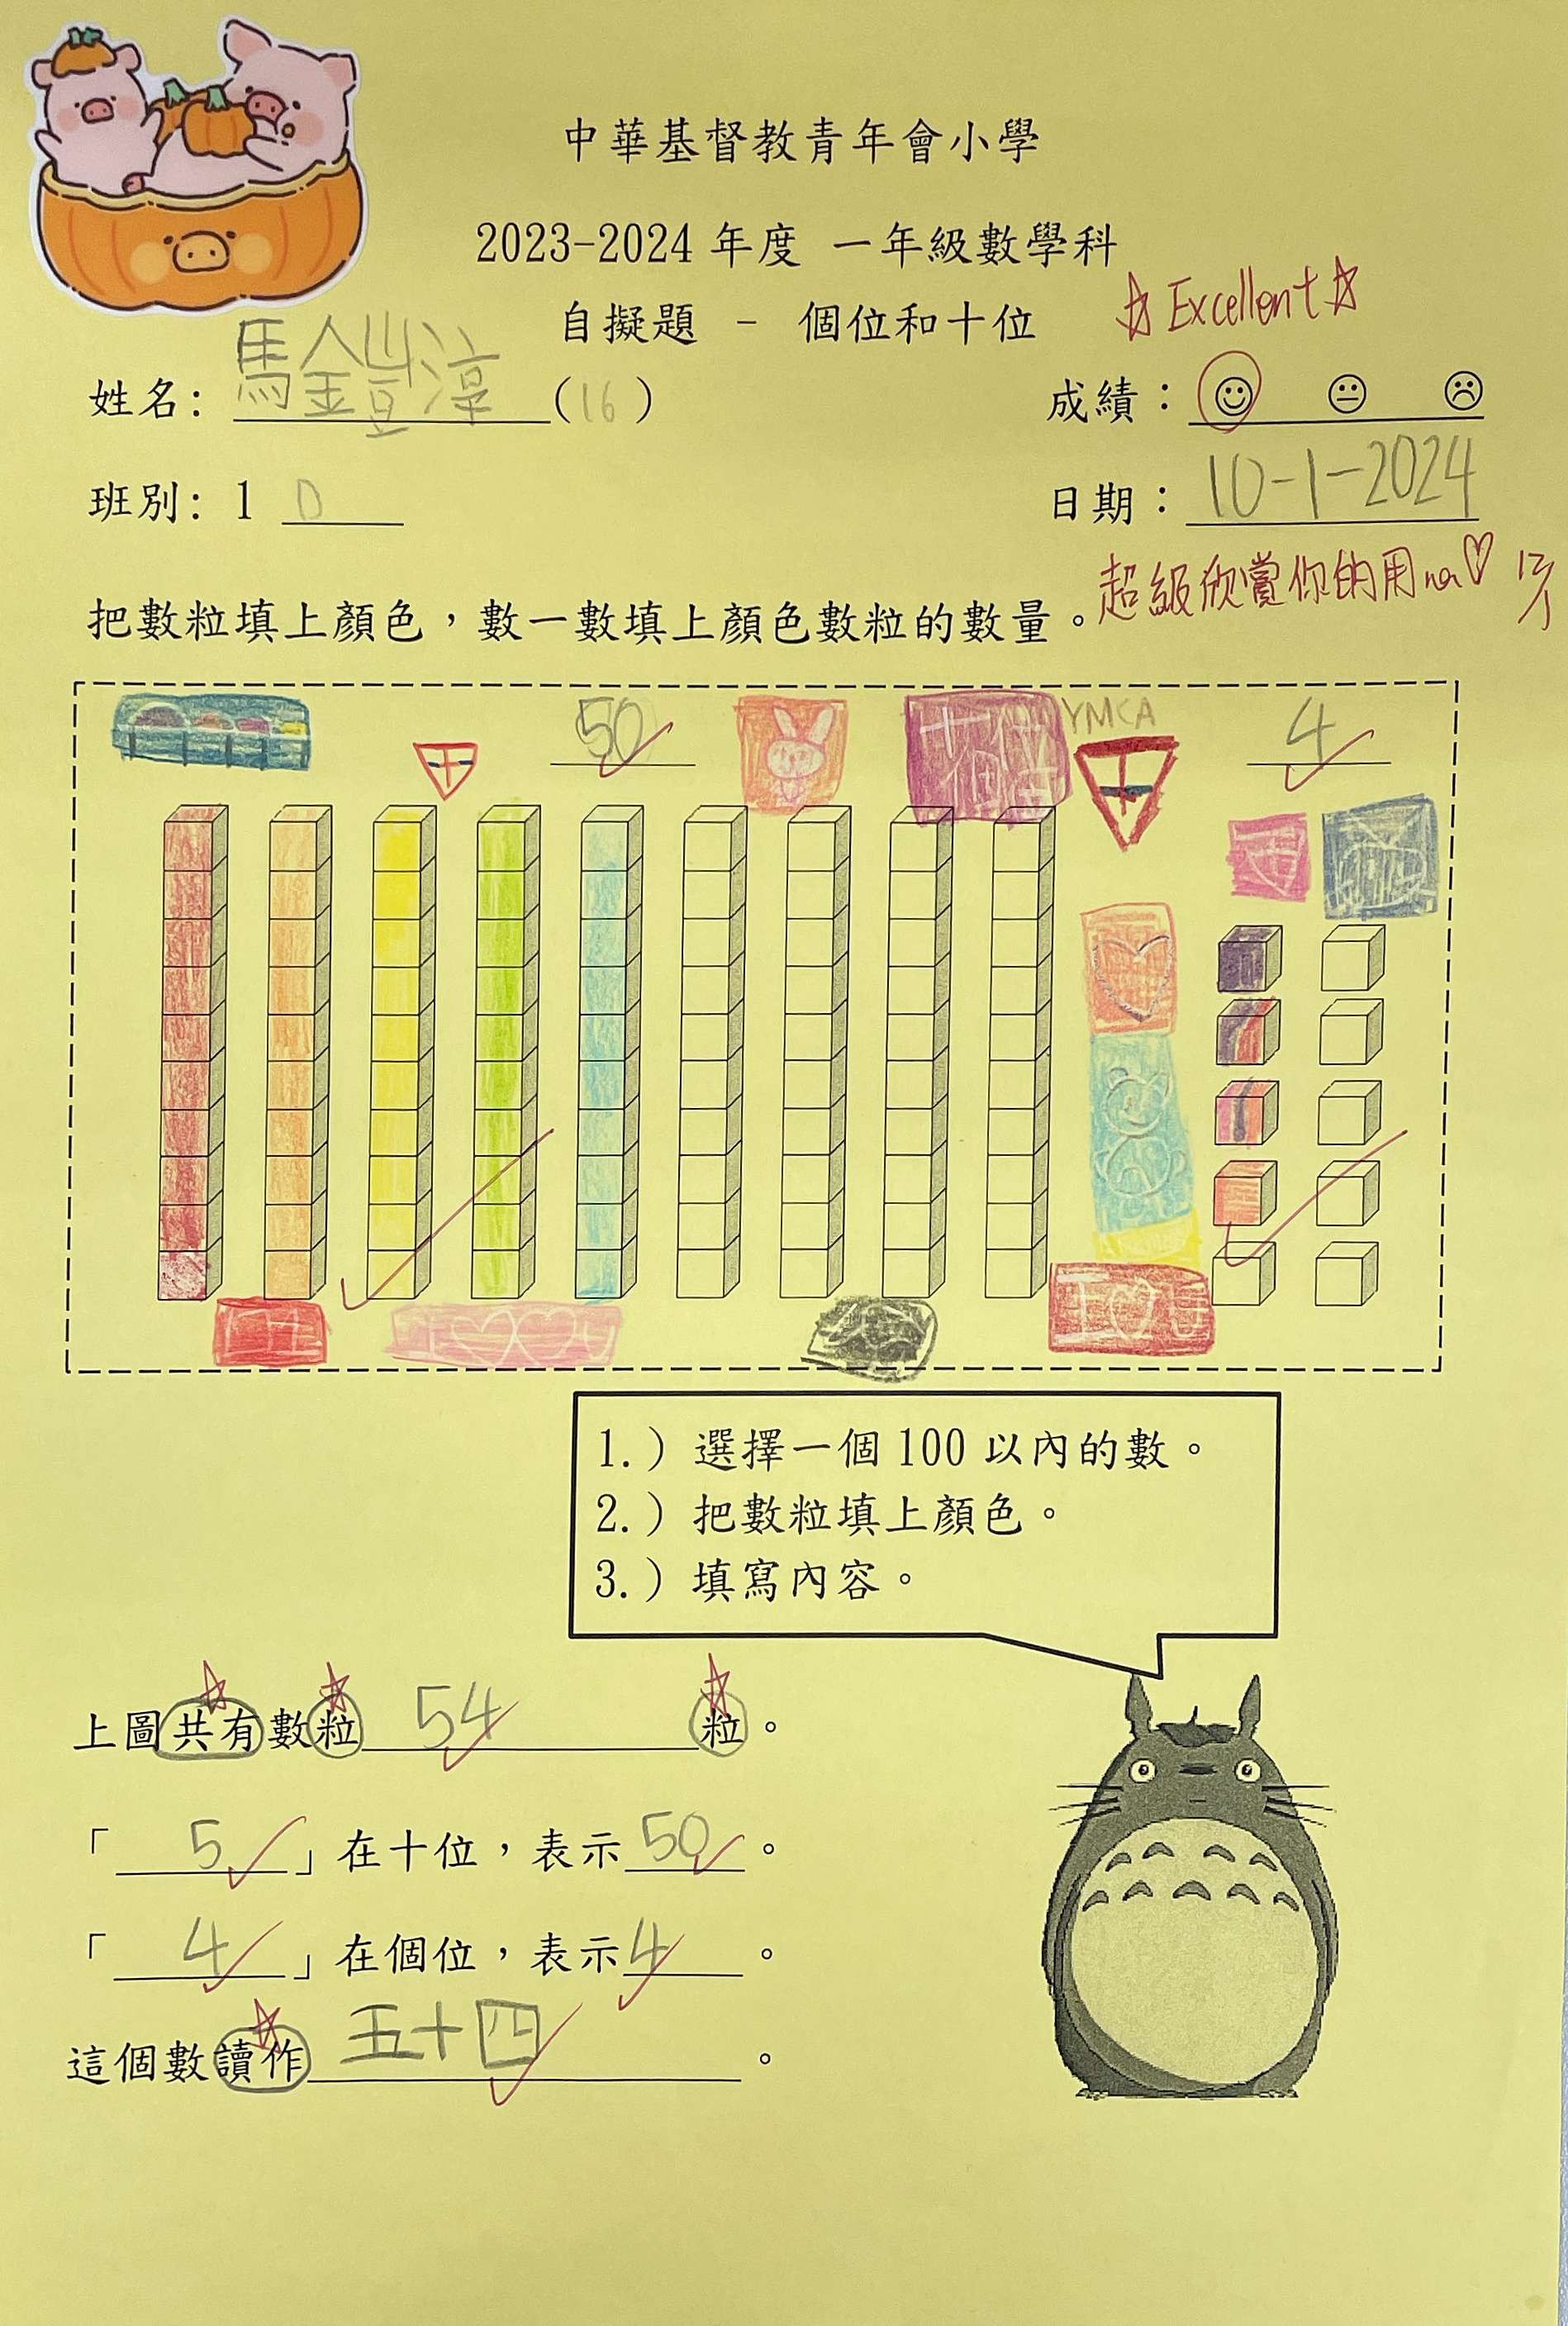 中華基督教青年會小學
2023-2024 年度 一年級數學科
自擬題 - 個位和十位
☆ Excellent ☆
姓名: 馬鎧淳 (16)
成績：☺ 😐 ☹
班別: 1 D
日期：10-1-2024
超級欣賞你的用心♡
把數粒填上顏色，數一數填上顏色數粒的數量。
50
YMCA
4
十個位
I ♡
1.) 選擇一個 100 以內的數。
2.) 把數粒填上顏色。
3.) 填寫內容。
上圖共有數粒 54 粒。
「 5 」在十位，表示 50 。
「 4 」在個位，表示 4 。
這個數讀作 五十四 。